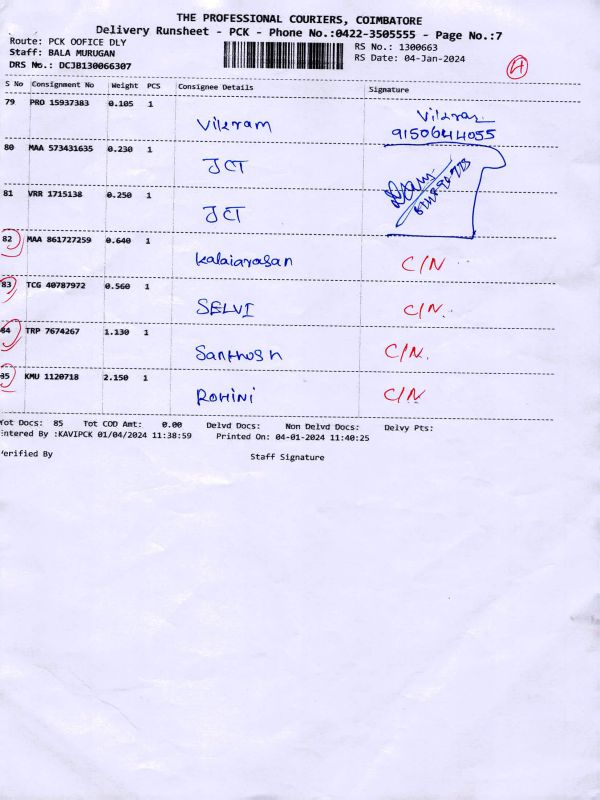 THE PROFESSIONAL COURIERS, COIMBATORE
Delivery Runsheet - PCK - Phone No.:0422-3505555 - Page No.:7
Route: PCK OOFICE DLY
RS No.: 1300663
Staff: BALA MURUGAN
RS Date: 04-Jan-2024
DRS No.: DCJB130066307
4
S No Consignment No Weight PCS Consignee Details Signature
79 PRO 15937383 0.105 1 Vikram Vikram
9150644055
80 MAA 573431635 0.230 1 JCT
81 VRR 1715138 0.250 1 JCT
82 MAA 861727259 0.640 1 Kalaiarasan C/N
83 TCG 40787972 0.560 1 SELVI C/N.
84 TRP 7674267 1.130 1 Santhosh C/N.
85 KMU 1120718 2.150 1 ROHINI C/N
Tot Docs: 85 Tot COD Amt: 0.00 Delvd Docs: Non Delvd Docs: Delvy Pts:
Entered By :KAVIPCK 01/04/2024 11:38:59 Printed On: 04-01-2024 11:40:25
Verified By Staff Signature